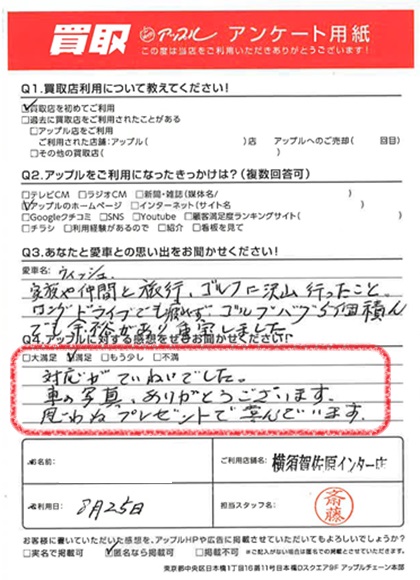 買取 アップル アンケート用紙
この度は当店をご利用いただきありがとうございます!
Q1.買取店利用について教えてください!
☑買取店を初めてご利用
□過去に買取店をご利用されたことがある
□アップル店をご利用
ご利用された店舗:アップル( )店 アップルへのご売却( 回目)
□その他の買取店( )
Q2.アップルをご利用になったきっかけは?(複数回答可)
□テレビCM □ラジオCM □新聞・雑誌(媒体名/ )
☑アップルのホームページ □インターネット(サイト名 )
□Googleクチコミ □SNS □Youtube □顧客満足度ランキングサイト( )
□チラシ □利用経験があるので □紹介 □看板を見て
Q3.あなたと愛車との思い出をお聞かせください!
愛車名: ウィッシュ
家族や仲間と旅行、ゴルフに沢山行ったこと。
ロングドライブでも疲れず、ゴルフバッグ5個積ん
でも余裕があり重宝しました。
Q4.アップルに対する感想をぜひお聞かせください!
□大満足 ☑満足 □もう少し □不満
対応がていねいでした。
車の写真、ありがとうございます。
思わぬプレゼントで喜んでいます。
お名前:
ご利用店舗名: 横須賀佐原インター店
ご利用日: 8月25日
担当スタッフ名: 斎藤
お客様に書いていただいた感想を、アップルHPや広告に掲載させていただいてもよろしいでしょうか?
□実名で掲載可 ☑匿名なら掲載可 □掲載不可 ※ご記入がない場合は匿名での掲載とさせていただきます。
東京都中央区日本橋1丁目16番11号日本橋Dスクエア9F アップルチェーン本部